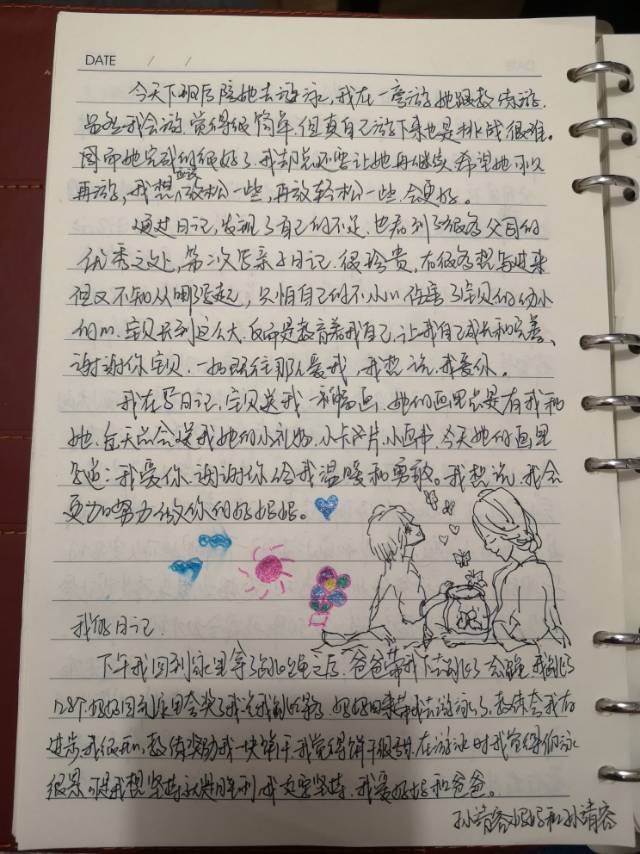 DATE / /
今天下班后陪她去游泳,我在一旁游她跟教练游.
虽然我会游,觉得很简单,但真自己游下来也是挑战很难.
因而她完成的很好了.我却总还要让她再继续,希望她可以
再游,我想应该放松一些,再放轻松一些,会更好。
通过日记,发现了自己的不足.也看到了很多父母的
优秀之处,第一次写亲子日记.很珍贵,有很多想写进来
但又不知从哪写起,只怕自己的不小心伤害了宝贝的幼小
的心.宝贝长到这么大.反而是教育着我自己,让我自己成长和完善、
谢谢你宝贝.一如既往那么爱我,我想说,我爱你.
我在写日记,宝贝送我一幅画,她的画里总是有我和
她.每天总会送我她的小礼物.小卡片,小画书.今天她的画里
写道:我爱你.谢谢你给我温暖和勇敢。我想说,我会
更加努力做你的好妈妈。
我的日记.
下午我回到家里拿了跳绳之后.爸爸带我下去跳了会绳.我跳了
128个.妈妈回到家里夸奖了我说我跳的好.妈妈回来带我去游泳了.教练夸我有
进步.我很开心,教练奖励我一块饼干.我觉得饼干很甜.在游泳时我觉得仰泳
很累.可是我想坚持就是胜利.我又要坚持.我爱妈妈和爸爸。
孙靖容妈妈和孙靖容